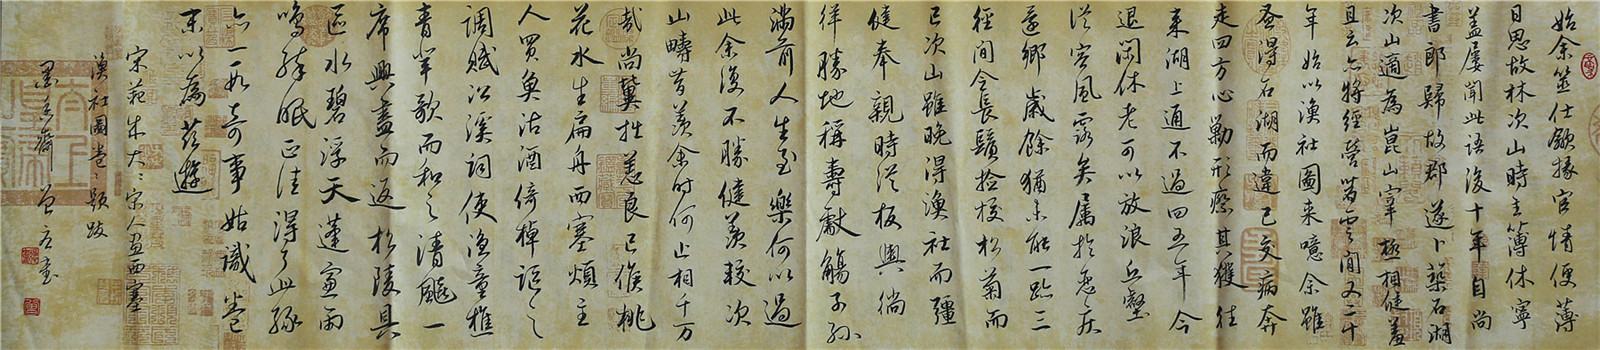 始余筮仕歙掾宦情便薄
日思故林次山時主簿休寧
蓋屢聞此語後十年自尚
書郎歸故郡遂卜築石湖
次山適為崑山宰極相健羨
且云亦將經營苕霅間又二十
年始以漁社圖來噫余雖
蚤得石湖而違己交病奔
走四方心勦形瘵其獲往
來湖上通不過四五年今
退閑休老可以放浪丘壑
從容風露矣屬抱衰疾
還鄉歲餘猶未能一跡三
徑間令長鬚撿挍松菊而
已次山雖晚得漁社而彊
健奉親時從板輿徜
徉勝地稱壽獻觴子孫
滿前人生至樂何以過
此余復不勝健羨較次
山疇昔羨余時何止相千万
哉尚冀拙恙良已候桃
花水生扁舟西塞煩主
人買魚沽酒倚棹謳之
調賦沿溪詞使漁童樵
青輩歌而和之清飈一
席興盡而返松陵具
區水碧浮天蓬窗雨
鳴醉眠正佳得了此緣
亦一段奇事姑識卷
末以為茲遊
宋范成大之宋人画西塞
漁社圖卷之題跋
墨香齋 書